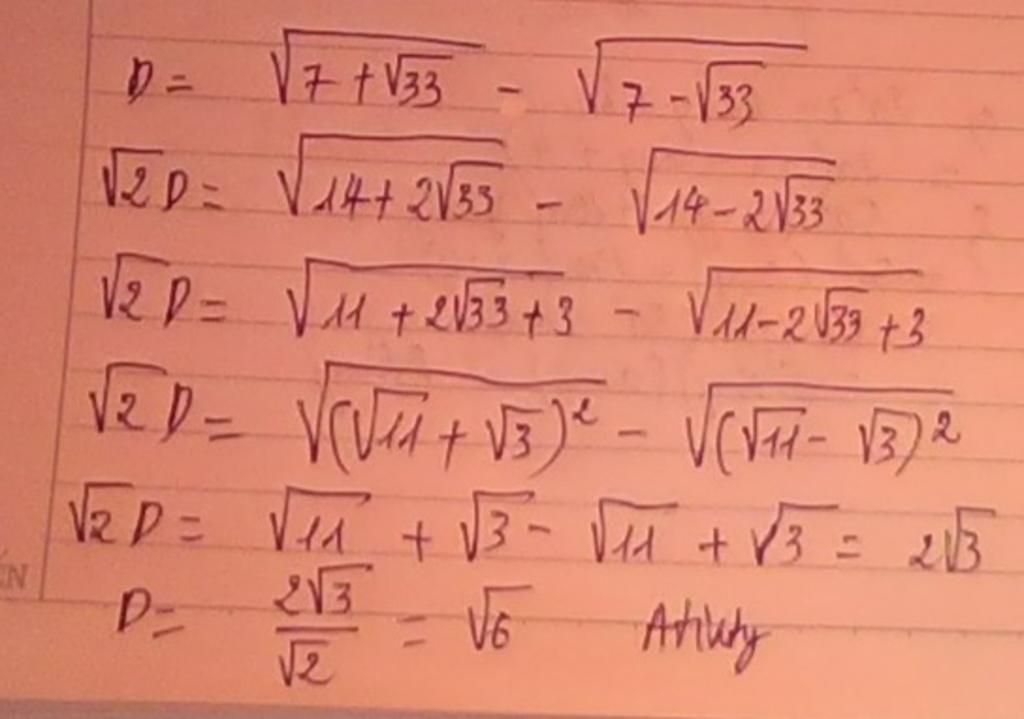 D = √(7 + √33) - √(7 - √33)
√2 D = √(14 + 2√33) - √(14 - 2√33)
√2 D = √(11 + 2√33 + 3) - √(11 - 2√33 + 3)
√2 D = √((√11 + √3)²) - √((√11 - √3)²)
√2 D = √11 + √3 - √11 + √3 = 2√3
D = 2√3/√2 = √6